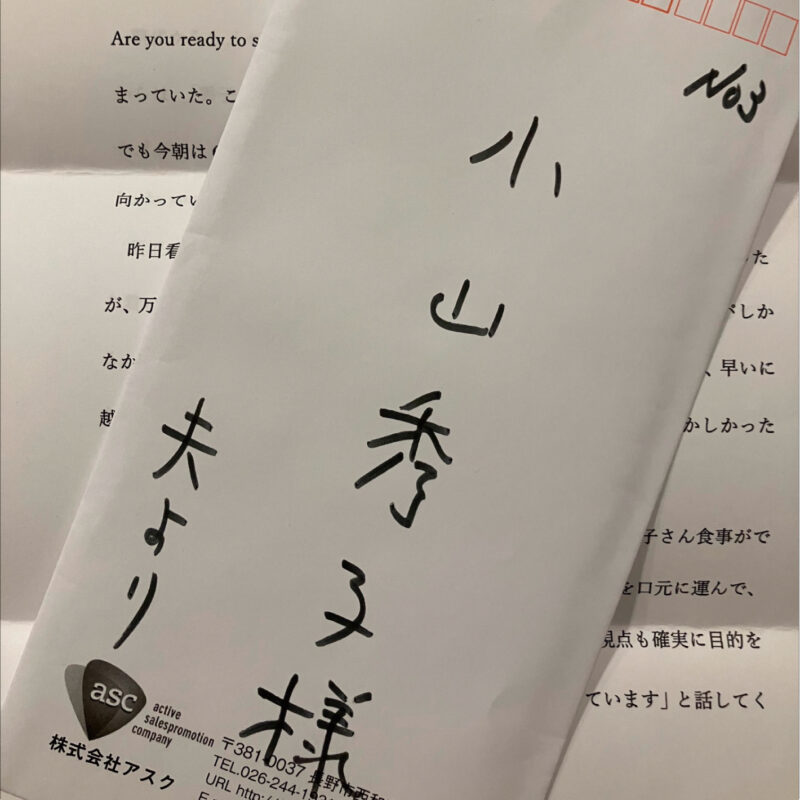 No3
小山秀子様
夫より
asc
active
salespromotion
company
株式会社アスク
〒381-0037 長野市西和
TEL.026-244-1
URL http:/
Are you ready to s
まっていた。こ
でも今朝は
向かってい
昨日看
が、万
なか
越
た
がしか
、早いに
かしかった
子さん食事がで
を口元に運んで、
視点も確実に目的を
ています」と話してく